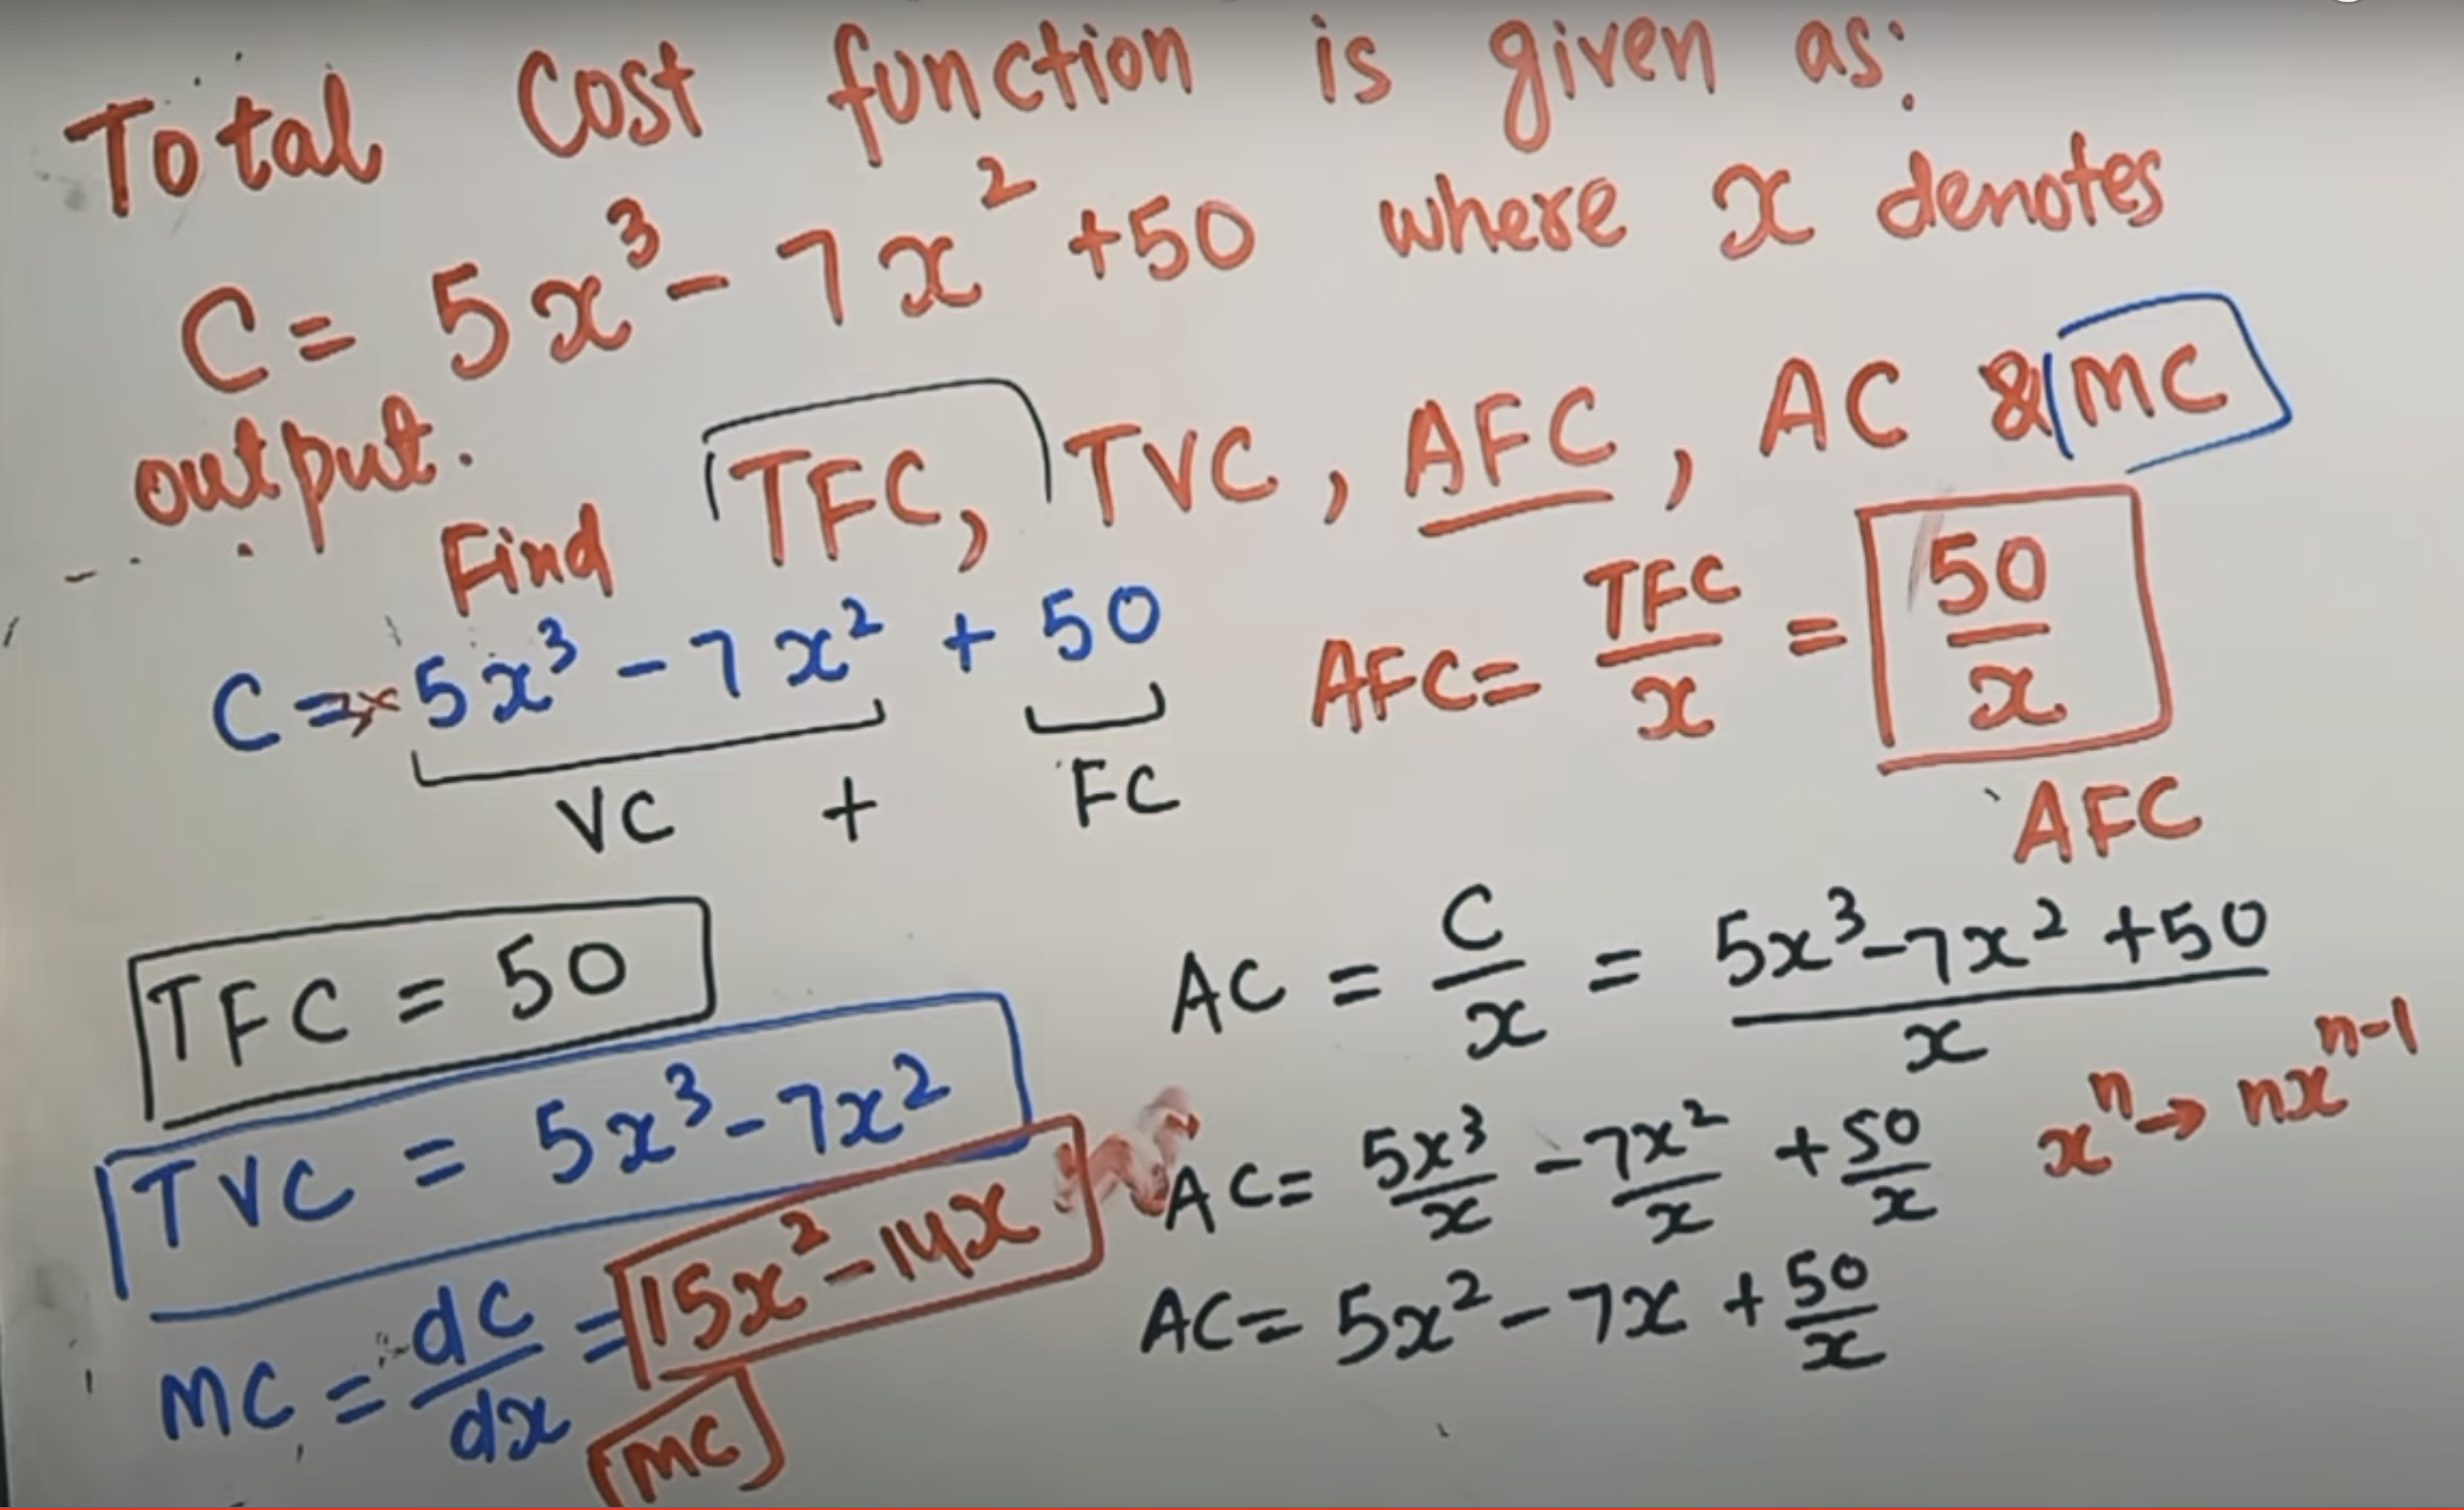 Total Cost function is given as:
C = 5x³ - 7x² + 50 where x denotes
output.
Find TFC, TVC, AFC, AC & MC
C = 5x³ - 7x² + 50
VC + FC
AFC = TFC/x = 50/x
AFC
TFC = 50
TVC = 5x³ - 7x²
MC = dC/dx = 15x² - 14x
MC
AC = C/x = (5x³ - 7x² + 50)/x
xⁿ → nxⁿ⁻¹
AC = 5x³/x - 7x²/x + 50/x
AC = 5x² - 7x + 50/x